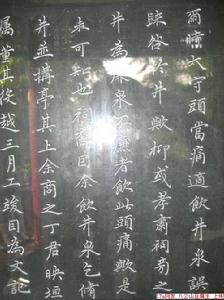 爾時太守頭當痛適飲井泉誤
歸咎於井歟抑或孝肅祠旁之
井為廉泉不廉者飲此頭痛歟是
未可知也祠裔因余飲井泉乞脩
井並搆亭其上余商之丁君映垣
屬董其役越三月工竣因為文記